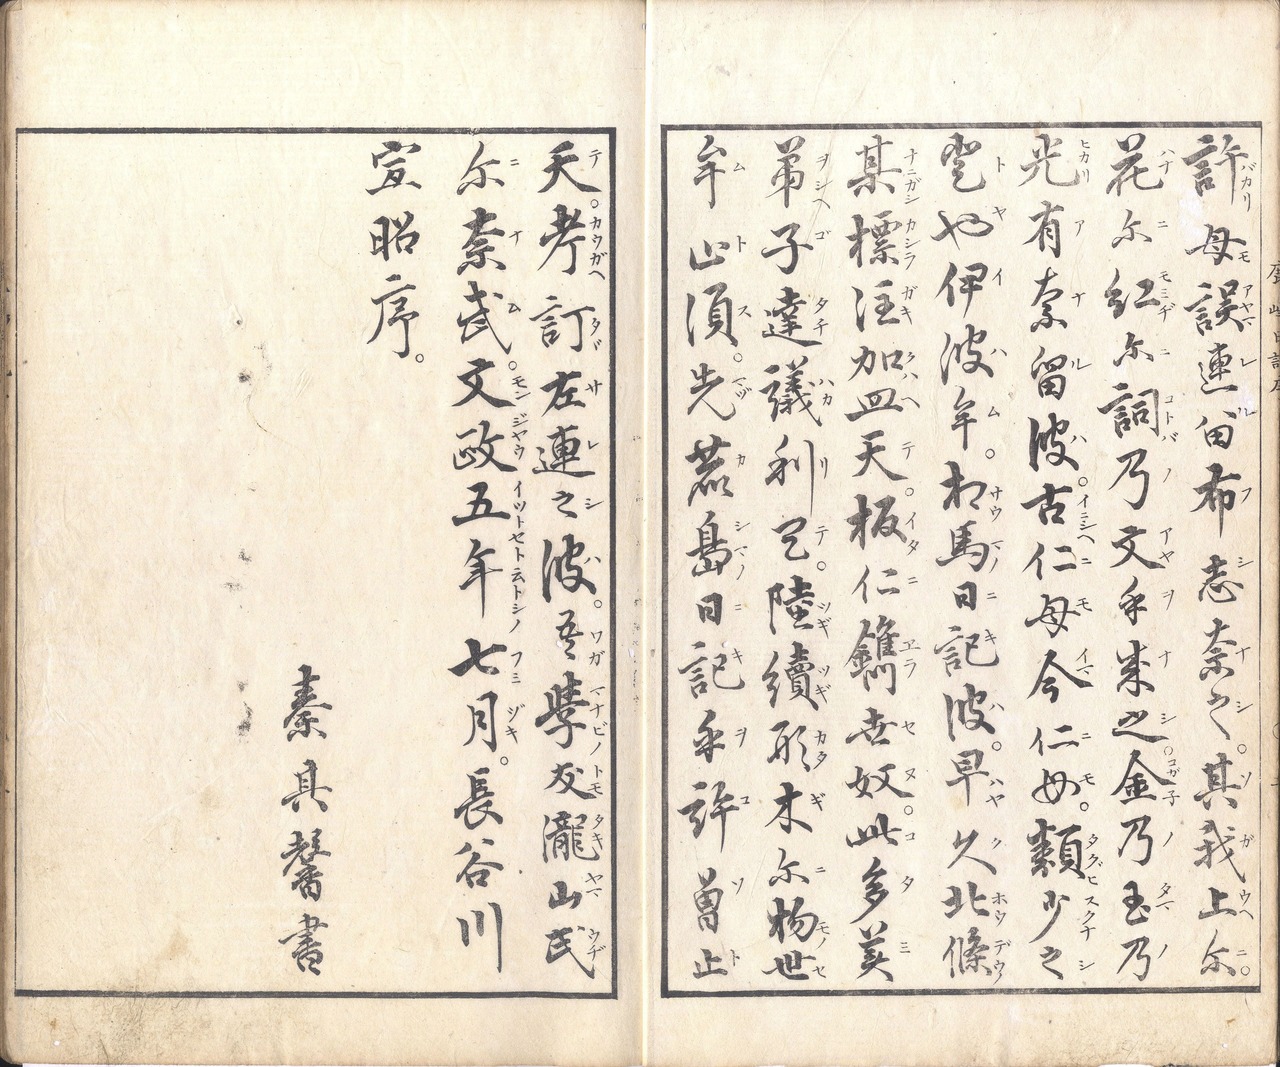 許母誤連留布志奈之。其我上尓。
花尓紅尓詞乃文乎奈之。金乃玉乃
光有奈留波。古仁母今仁母。類少之
登也伊波牟。相馬日記波。早久北條
某標注加皿天。板仁鐫世奴。此多美
弟子達議利弖。陸續形木尓物世
牟止須。先鹿島日記乎許曽止
天。考訂左連之波。吾學友瀧山氏
尓奈武。文政五年七月。長谷川
宣昭序。
秦其馨書